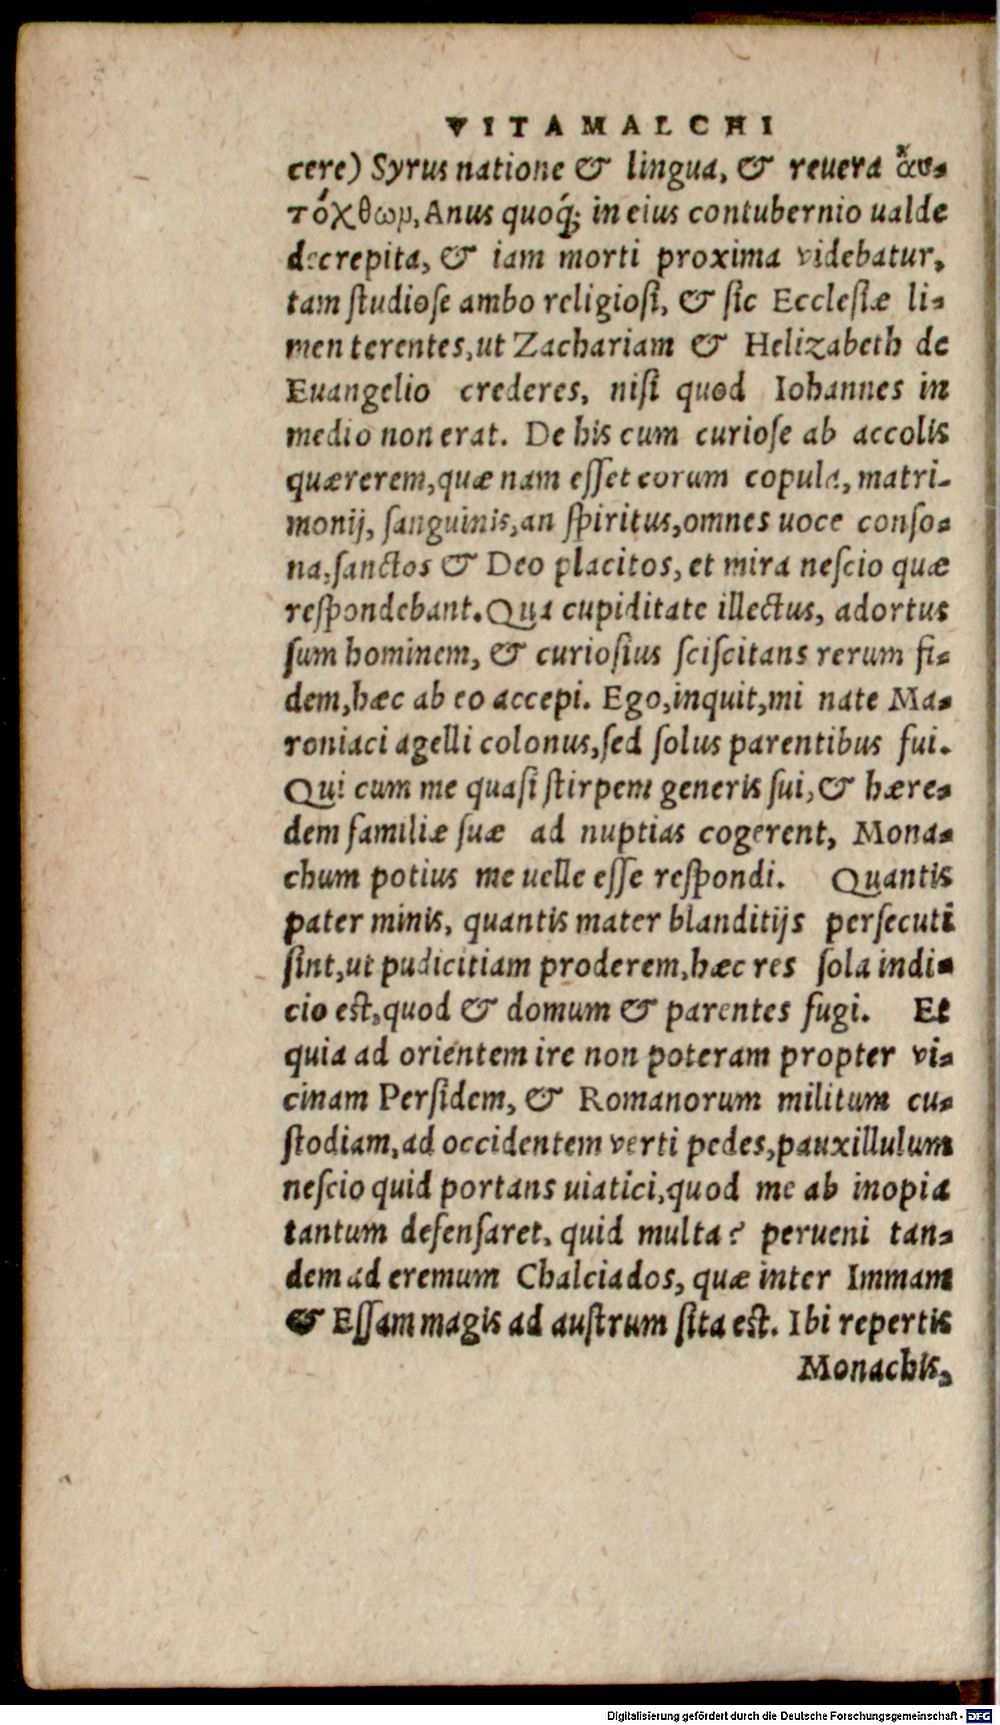 VITA MALCHI
cere) Syrus natione & lingua, & reuera ἀυ-
τόχθωμ, Anus quoq; in eius contubernio ualde
decrepita, & iam morti proxima videbatur,
tam ſtudioſe ambo religioſi, & ſic Eccleſiæ li-
men terentes, ut Zachariam & Helizabeth de
Euangelio crederes, niſi quod Iohannes in
medio non erat. De his cum curioſe ab accolis
quærerem, quæ nam eſſet eorum copula, matri-
monij, ſanguinis, an ſpiritus, omnes uoce conſo-
na, ſanctos & Deo placitos, et mira neſcio quæ
reſpondebant. Qua cupiditate illectus, adortus
ſum hominem, & curioſius ſciſcitans rerum fi-
dem, hæc ab eo accepi. Ego, inquit, mi nate Ma-
roniaci agelli colonus, ſed ſolus parentibus fui.
Qui cum me quaſi ſtirpem generis ſui, & hære-
dem familiæ ſuæ ad nuptias cogerent, Mona-
chum potius me uelle eſſe reſpondi. Quantis
pater minis, quantis mater blanditijs perſecuti
ſint, ut pudicitiam proderem, hæc res ſola indi-
cio eſt, quod & domum & parentes fugi. Et
quia ad orientem ire non poteram propter vi-
cinam Perſidem, & Romanorum militum cu-
ſtodiam, ad occidentem verti pedes, pauxillulum
neſcio quid portans uiatici, quod me ab inopia
tantum defenſaret. quid multa? perueni tan-
dem ad eremum Chalciados, quæ inter Immam
& Eſſam magis ad auſtrum ſita eſt. Ibi repertis
Monachis,
Digitalisierung gefördert durch die Deutsche Forschungsgemeinschaft - DFG